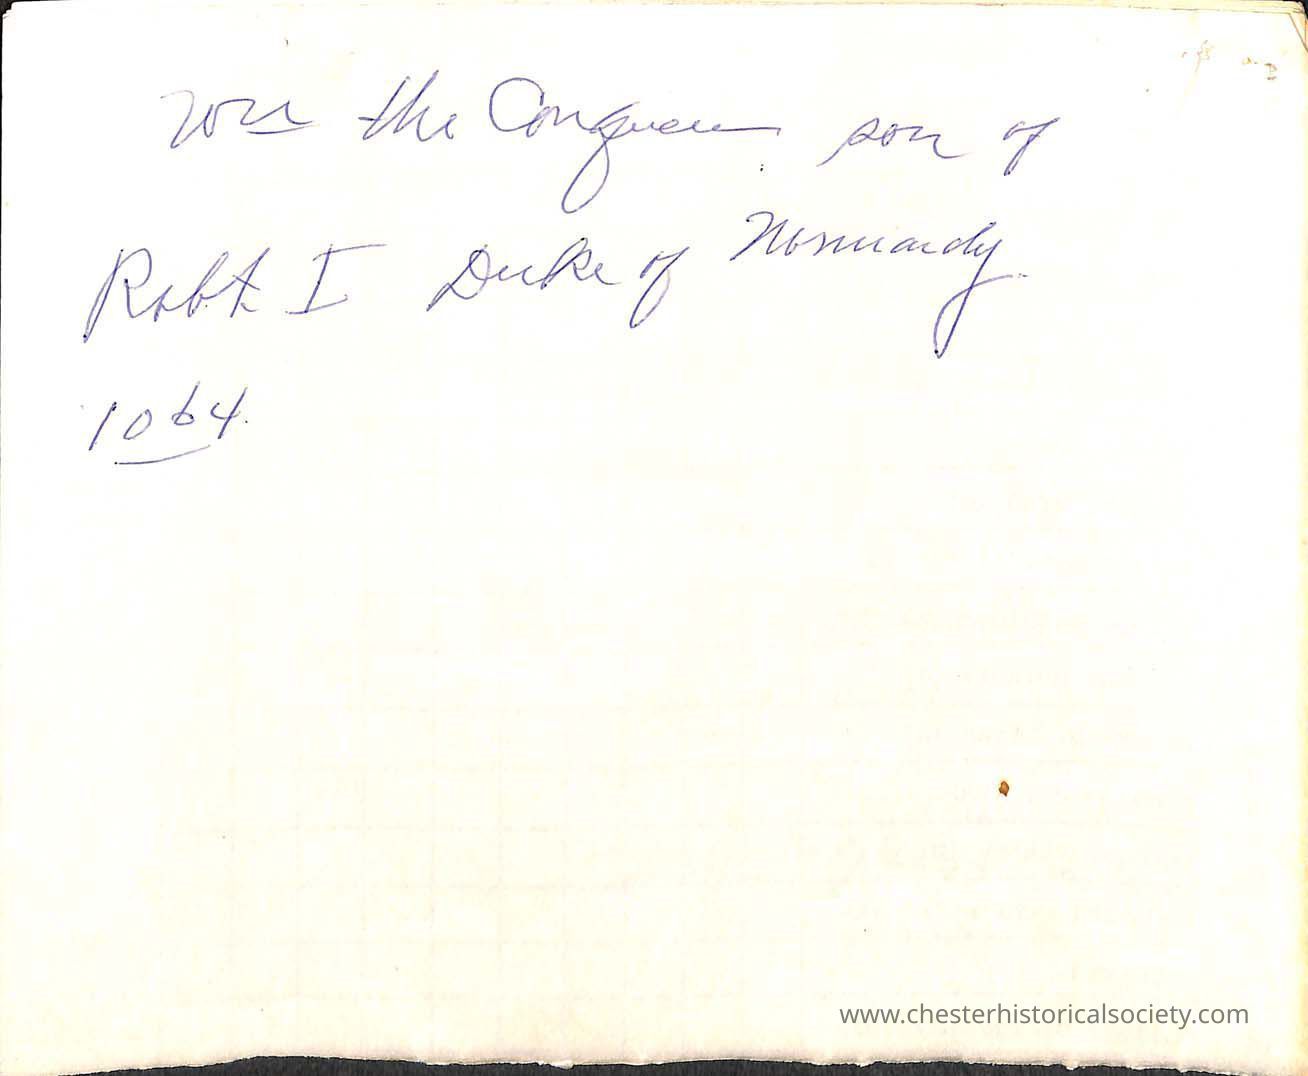 Wm the Conqueror son of
Robt I Duke of Normandy
1064
www.chesterhistoricalsociety.com